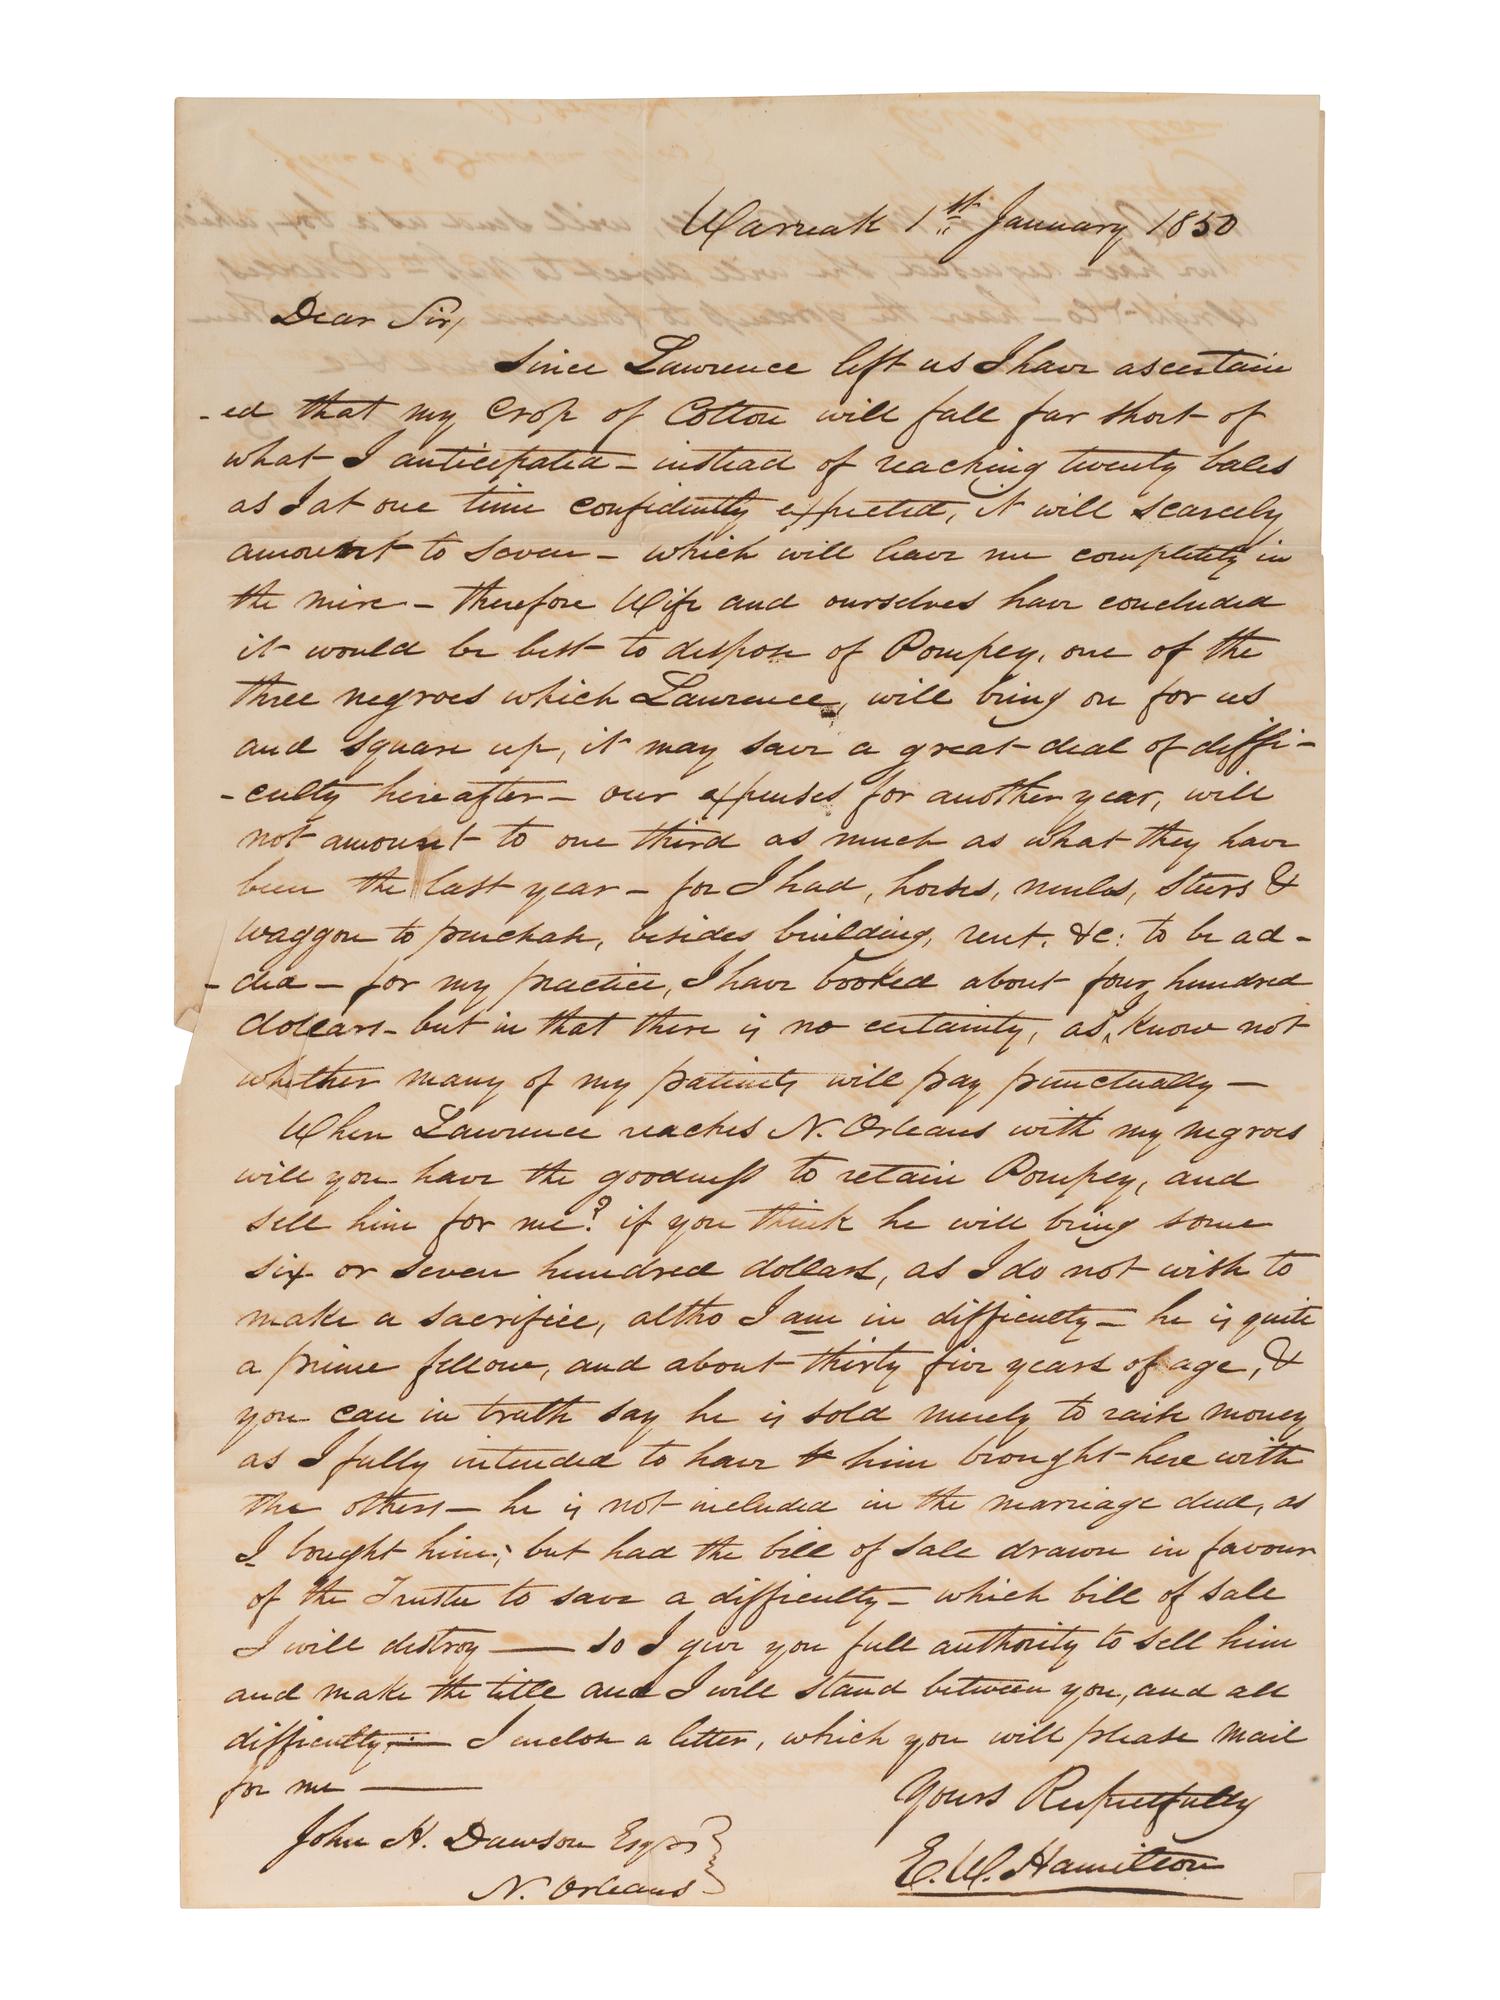 Warreak 1st January 1850
Dear Sir,
Since Lawrence left us I have ascertain
-ed that my Crop of Cotton will fall far short of
what I anticipated - instead of reaching twenty bales
as I at one time confidently expected, it will scarcely
amount to seven - which will leave me completely in
the mire - therefore Wife and ourselves have concluded
it would be best to dispose of Pompey, one of the
three negroes which Lawrence, will bring on for us
and square up, it may save a great deal of diffi-
-culty hereafter - our expenses for another year, will
not amount to one third as much as what they have
been the last year - for I had, horses, mules, steers &
waggon to purchase, besides building, rent, &c: to be ad-
-ded - for my practice, I have booked about four hundred
dollars - but in that there is no certainty, as, know not
whether many of my patients will pay punctually -
When Lawrence reaches N. Orleans with my negroes
will you have the goodness to retain Pompey, and
sell him for me? if you think he will bring some
six or seven hundred dollars, as I do not wish to
make a sacrifice, altho I am in difficulty - he is quite
a prime fellow, and about thirty five years of age, &
you can in truth say he is sold merely to raise money
as I fully intended to have him brought here with
the others - he is not included in the marriage deed, as
I bought him; but had the bill of sale drawn in favour
of the Trustee to save a difficulty - which bill of sale
I will destroy - so I give you full authority to sell him
and make the title and I will stand between you, and all
difficulty - I enclose a letter, which you will please mail
for me -
Yours Respectfully
E. W. Hamilton
John H. Dawson Esqr
N. Orleans